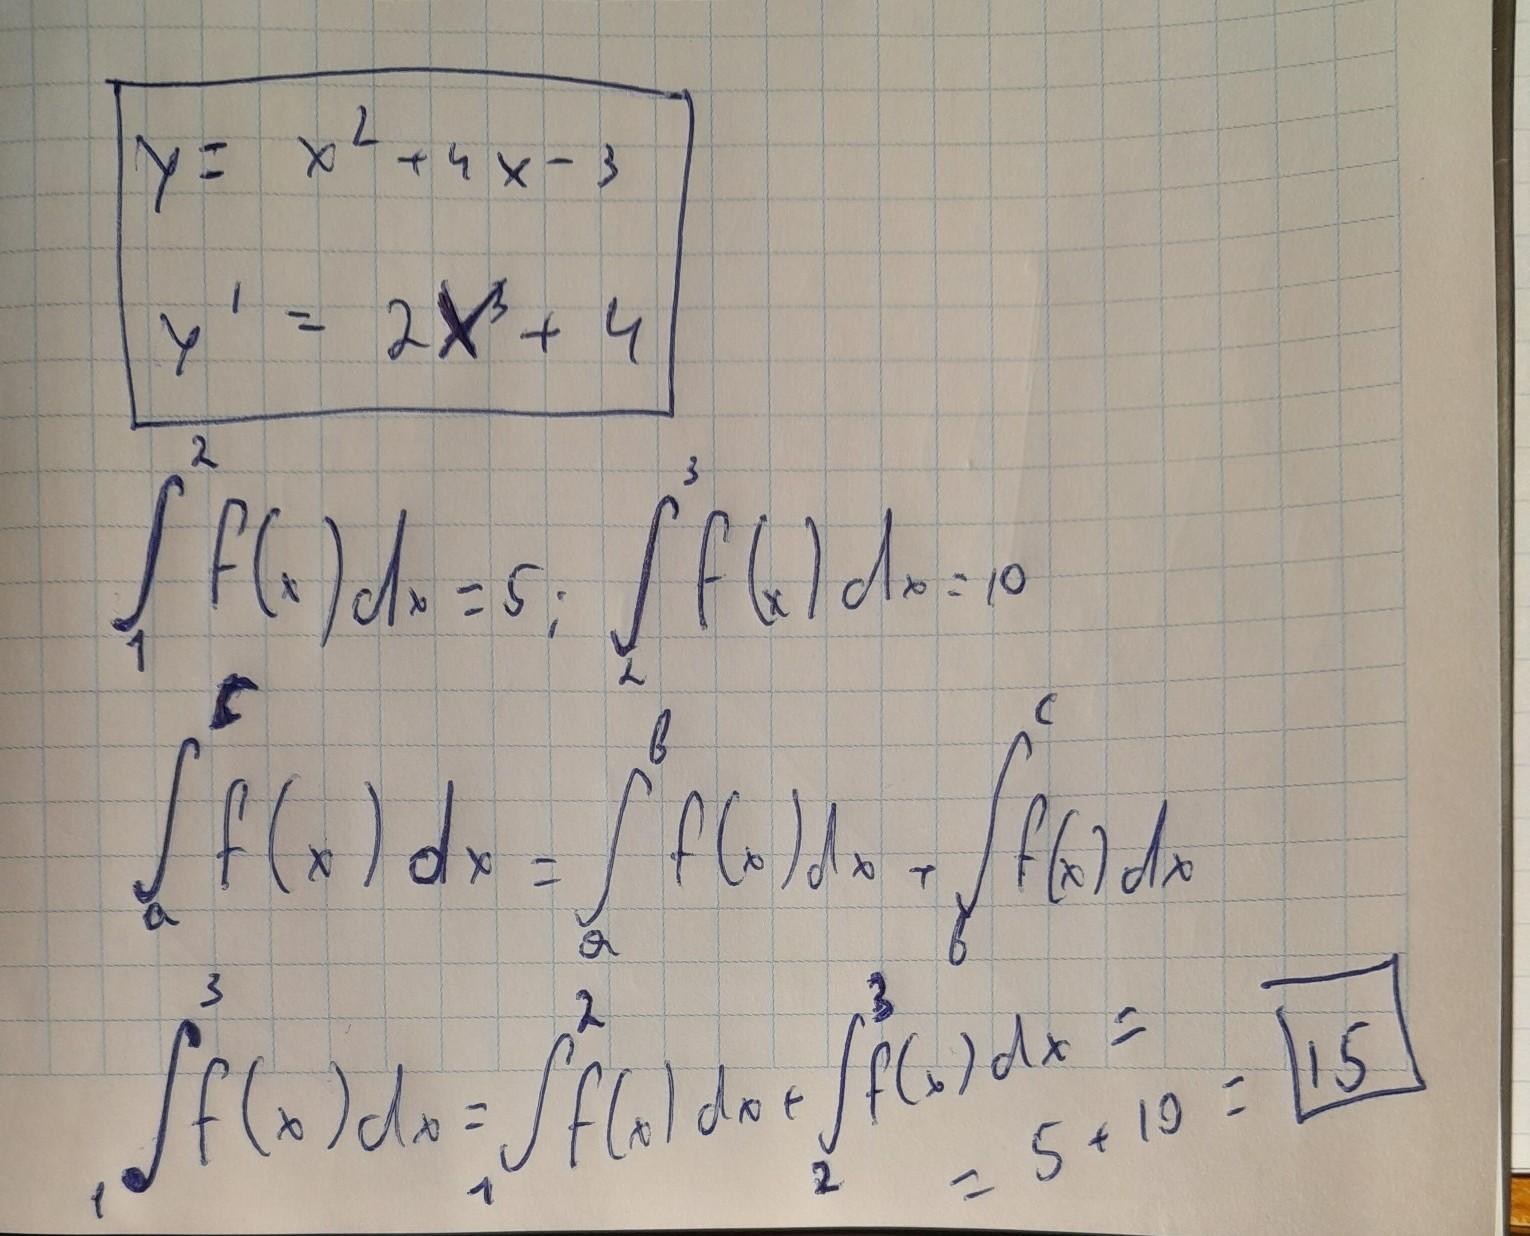 y = x² + 4x - 3
y' = 2x³ + 4
∫₁² f(x) dx = 5; ∫₂³ f(x) dx = 10
∫ₐᶜ f(x) dx = ∫ₐᵇ f(x) dx + ∫ᵇᶜ f(x) dx
∫₁³ f(x) dx = ∫₁² f(x) dx + ∫₂³ f(x) dx =
= 5 + 10 = 15